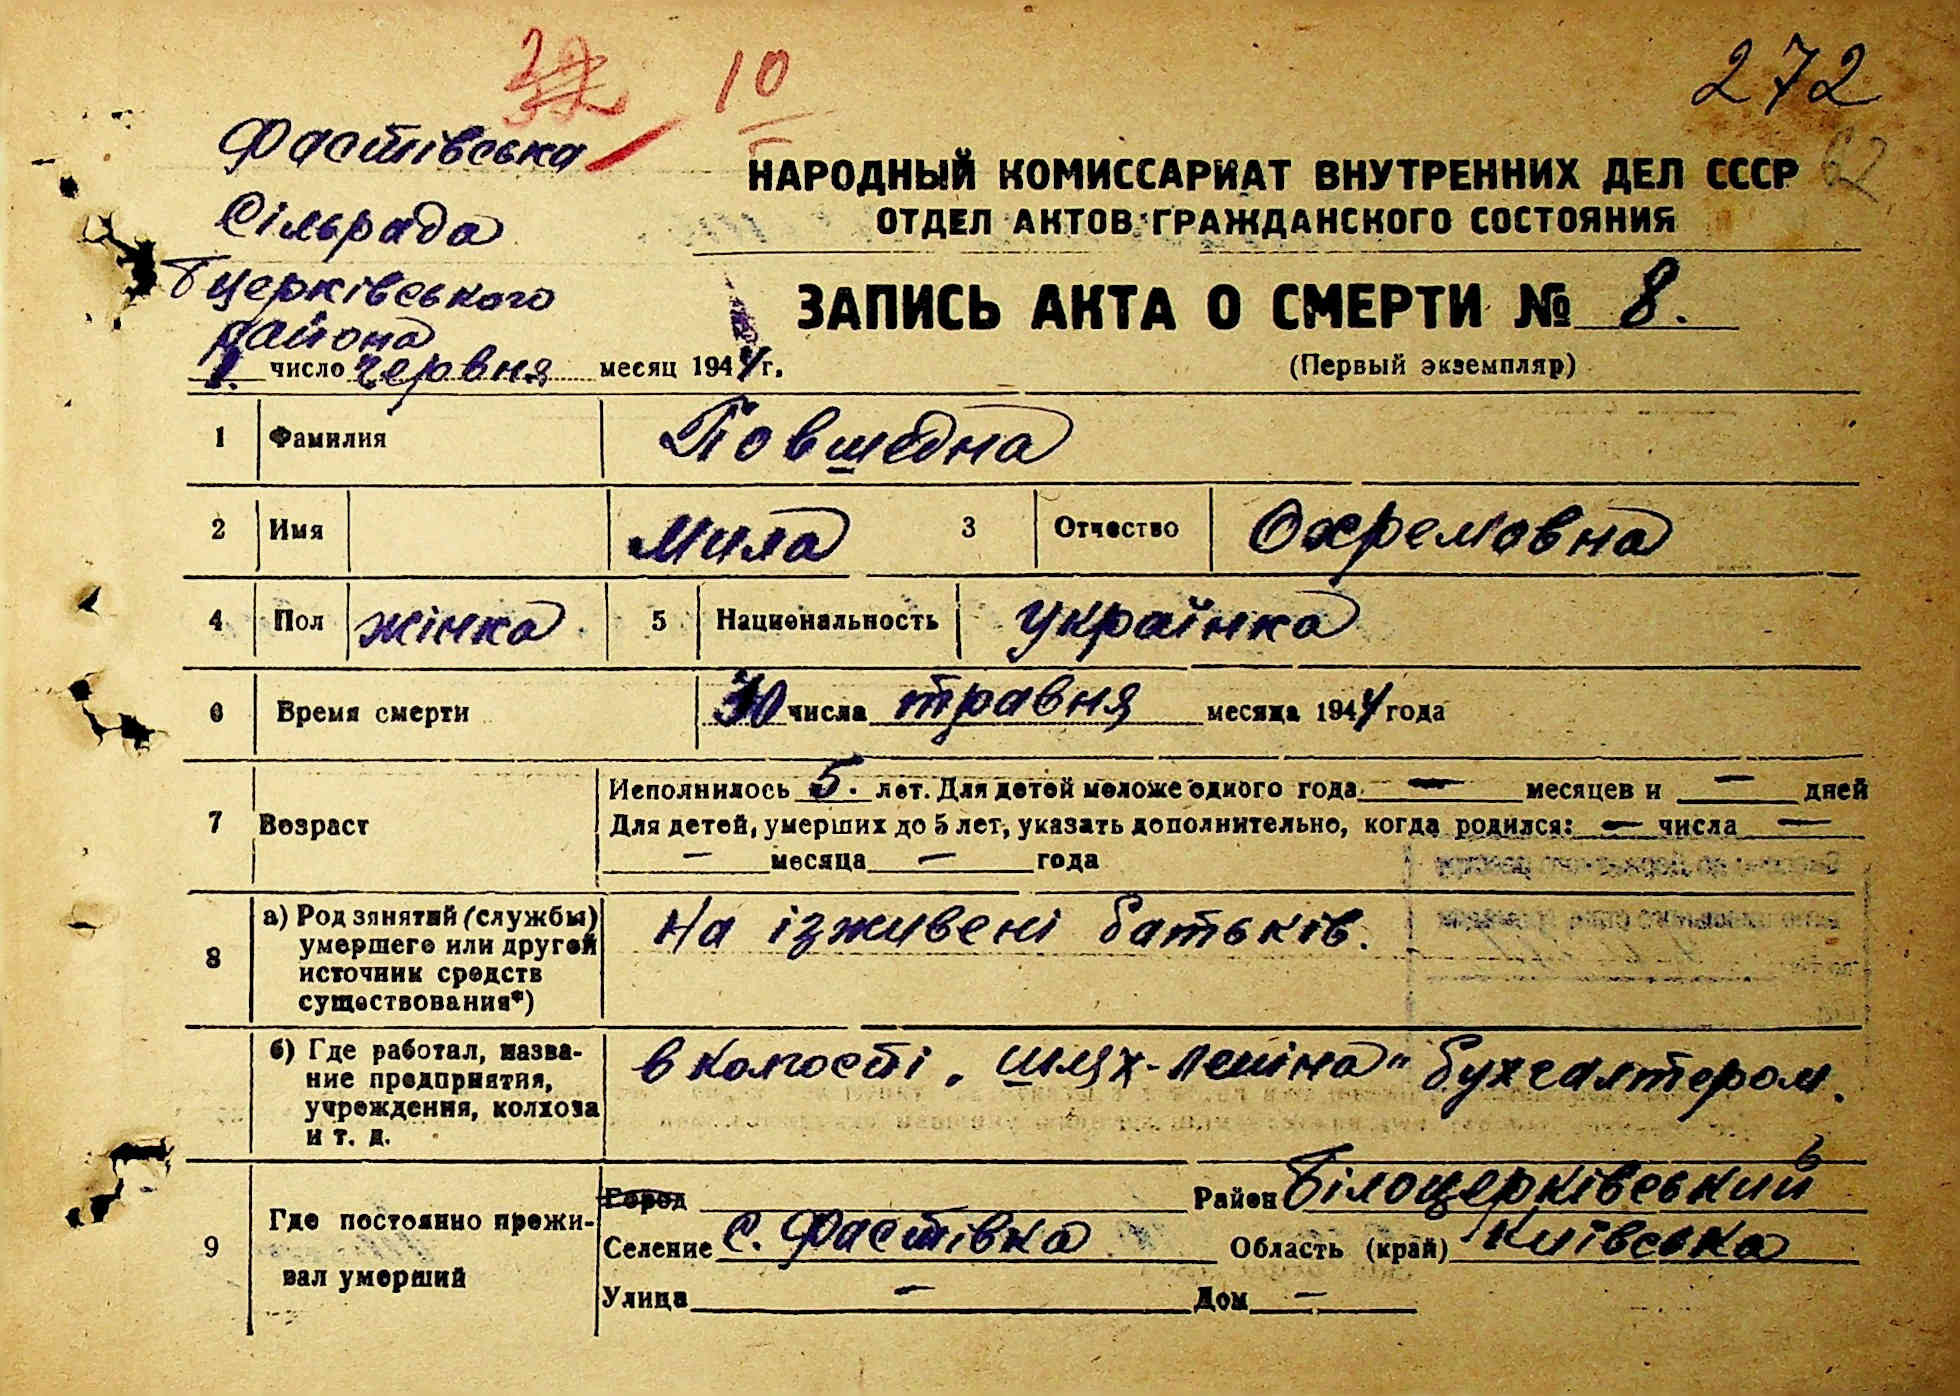 10
272
62
Фастівська
Сільрада
Бцерківського
района
1. число червня месяц 1944 г.
НАРОДНЫЙ КОМИССАРИАТ ВНУТРЕННИХ ДЕЛ СССР
ОТДЕЛ АКТОВ ГРАЖДАНСКОГО СОСТОЯНИЯ
ЗАПИСЬ АКТА О СМЕРТИ № 8.
(Первый экземпляр)
1 Фамилия Повшедна
2 Имя Мила 3 Отчество Охремовна
4 Пол жінка 5 Национальность українка
6 Время смерти 30 числа травня месяца 1944 года
7 Возраст Исполнилось 5. лет. Для детей моложе одного года — месяцев и — дней
Для детей, умерших до 5 лет, указать дополнительно, когда родился: — числа —
— месяца — года
8 а) Род занятий (службы) умершего или другой источник средств существования*) На ізживені батьків.
б) Где работал, название предприятия, учреждения, колхоза и т. д. в колгості „шлях-леніна" бухгалтером.
9 Где постоянно проживал умерший Город Район Білоцерківський
Селение с. Фастівка Область (край) Київська
Улица — Дом —